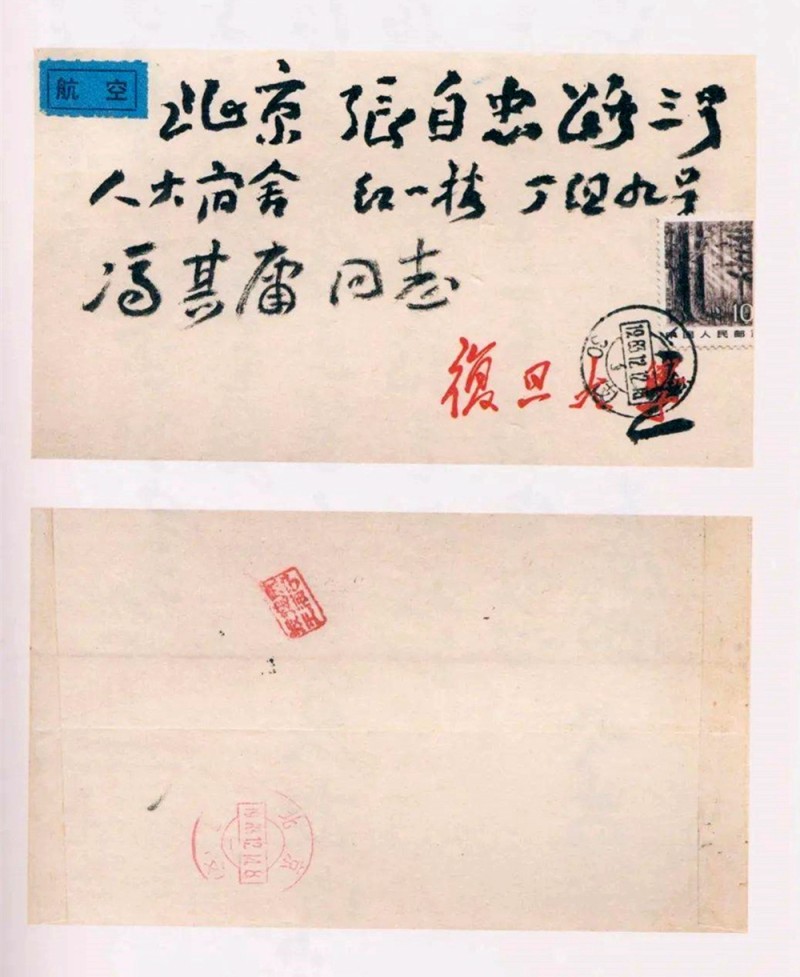 航空
北京 張自忠路三号
人大宿舍 红一楼 丁组九号
冯其庸 同志
10
中国人民邮
復旦大學
1983.12.12.18
北京